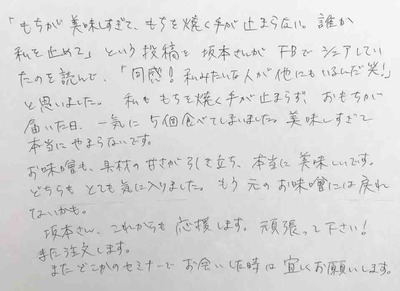 「もちが美味しすぎて、もちを焼く手が止まらない。誰か
私を止めて」という投稿を坂本さんがFBでシェアしてい
たのを読んで、「同感！私みたいな人が他にもいるんだ笑！」
と思いました。私ももちを焼く手が止まらず、おもちが
届いた日、一気に5個食べてしまいました。美味しすぎて
本当にやまらないです。
お味噌も、具材の甘さが引き立ち、本当に美味しいです。
どちらもとても気に入りました。もう元のお味噌には戻れ
ないかも。
坂本さん、これからも応援します。頑張って下さい！
また注文します。
またどこかのセミナーでお会いした時は宜しくお願いします。